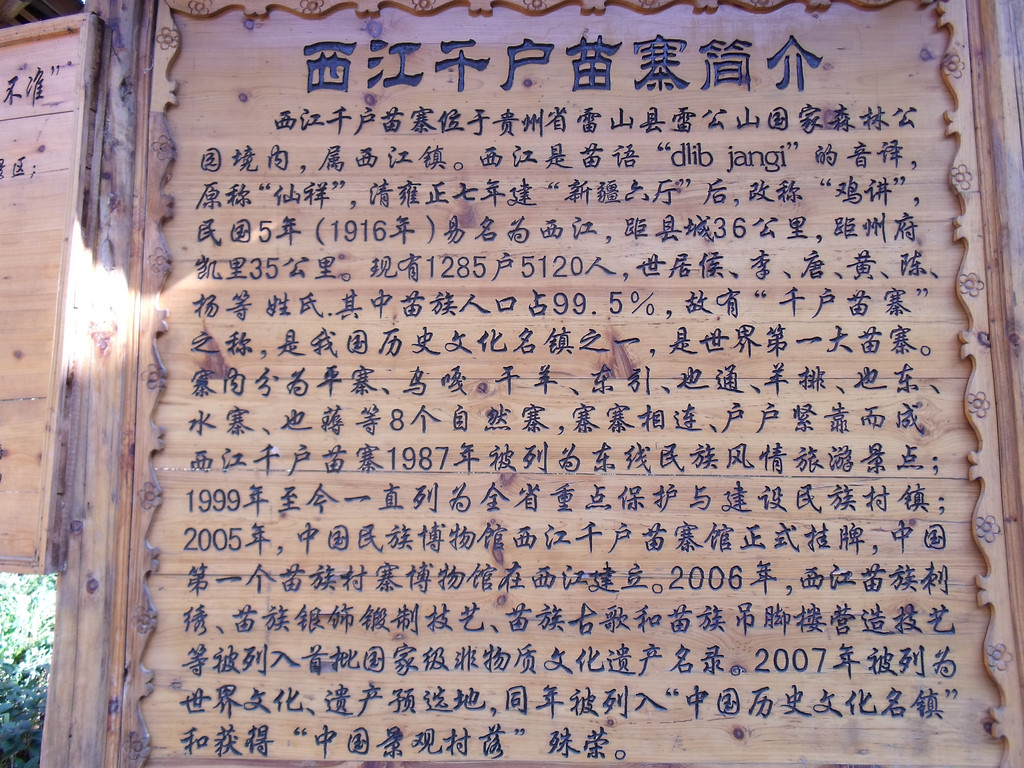 西江千户苗寨简介
西江千户苗寨位于贵州省雷山县雷公山国家森林公
园境内，属西江镇。西江是苗语“dlib jangi”的音译，
原称“仙祥”，清雍正七年建“新疆六厅”后，改称“鸡讲”，
民国5年（1916年）易名为西江，距县城36公里，距州府
凯里35公里。现有1285户5120人，世居侯、李、唐、黄、陈、
杨等姓氏.其中苗族人口占99.5%，故有“千户苗寨”
之称，是我国历史文化名镇之一，是世界第一大苗寨。
寨内分为平寨、乌嘎 干羊、东引、也通、羊排、也东、
水寨、也薅等8个自然寨，寨寨相连、户户紧靠而成
西江千户苗寨1987年被列为东线民族风情旅游景点；
1999年至今一直列为全省重点保护与建设民族村镇；
2005年，中国民族博物馆西江千户苗寨馆正式挂牌，中国
第一个苗族村寨博物馆在西江建立。2006年，西江苗族刺
绣、苗族银饰锻制技艺、苗族古歌和苗族吊脚楼营造技艺
等被列入首批国家级非物质文化遗产名录。2007年被列为
世界文化、遗产预选地，同年被列入“中国历史文化名镇”
和获得“中国景观村落”殊荣。
不准”
景区；